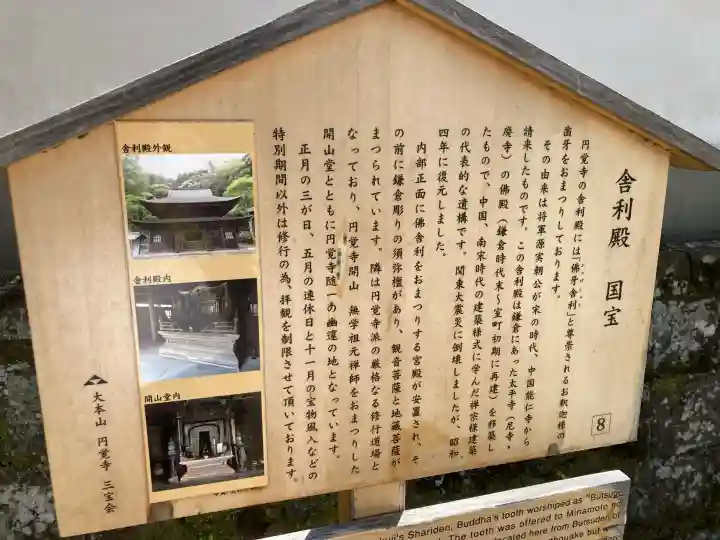 舎利殿　国宝
円覚寺の舎利殿には「佛牙舎利」と尊崇されるお釈迦様の
歯牙をおまつりしております。
その由来は将軍源実朝公が宋の時代、中国能仁寺から
請来したものです。この舎利殿は鎌倉にあった太平寺（尼寺・
廃寺）の佛殿（鎌倉時代末～室町初期に再建）を移築し
たもので、中国、南宋時代の建築様式に学んだ禅宗様建築
の代表的な遺構です。関東大震災に倒壊しましたが、昭和
四年に復元しました。
内部正面に佛舎利をおまつりする宮殿が安置され、そ
の前に鎌倉彫りの須弥壇があり、観音菩薩と地蔵菩薩が
まつられています。隣は円覚寺派の厳格なる修行道場と
なっており、円覚寺開山　無学祖元禅師をおまつりした
開山堂とともに円覚寺随一の幽邃の地となっています。
正月の三が日、五月の連休日と十一月の宝物風入などの
特別期間以外は修行の為、拝観を制限させて頂いております。
大本山　円覚寺　三宝会
8
舎利殿外観
舎利殿内
開山堂内
Shariden, Buddha's tooth worshiped as "Butsuge
The tooth was offered to Minamoto no
located here from Butsuden of
but we